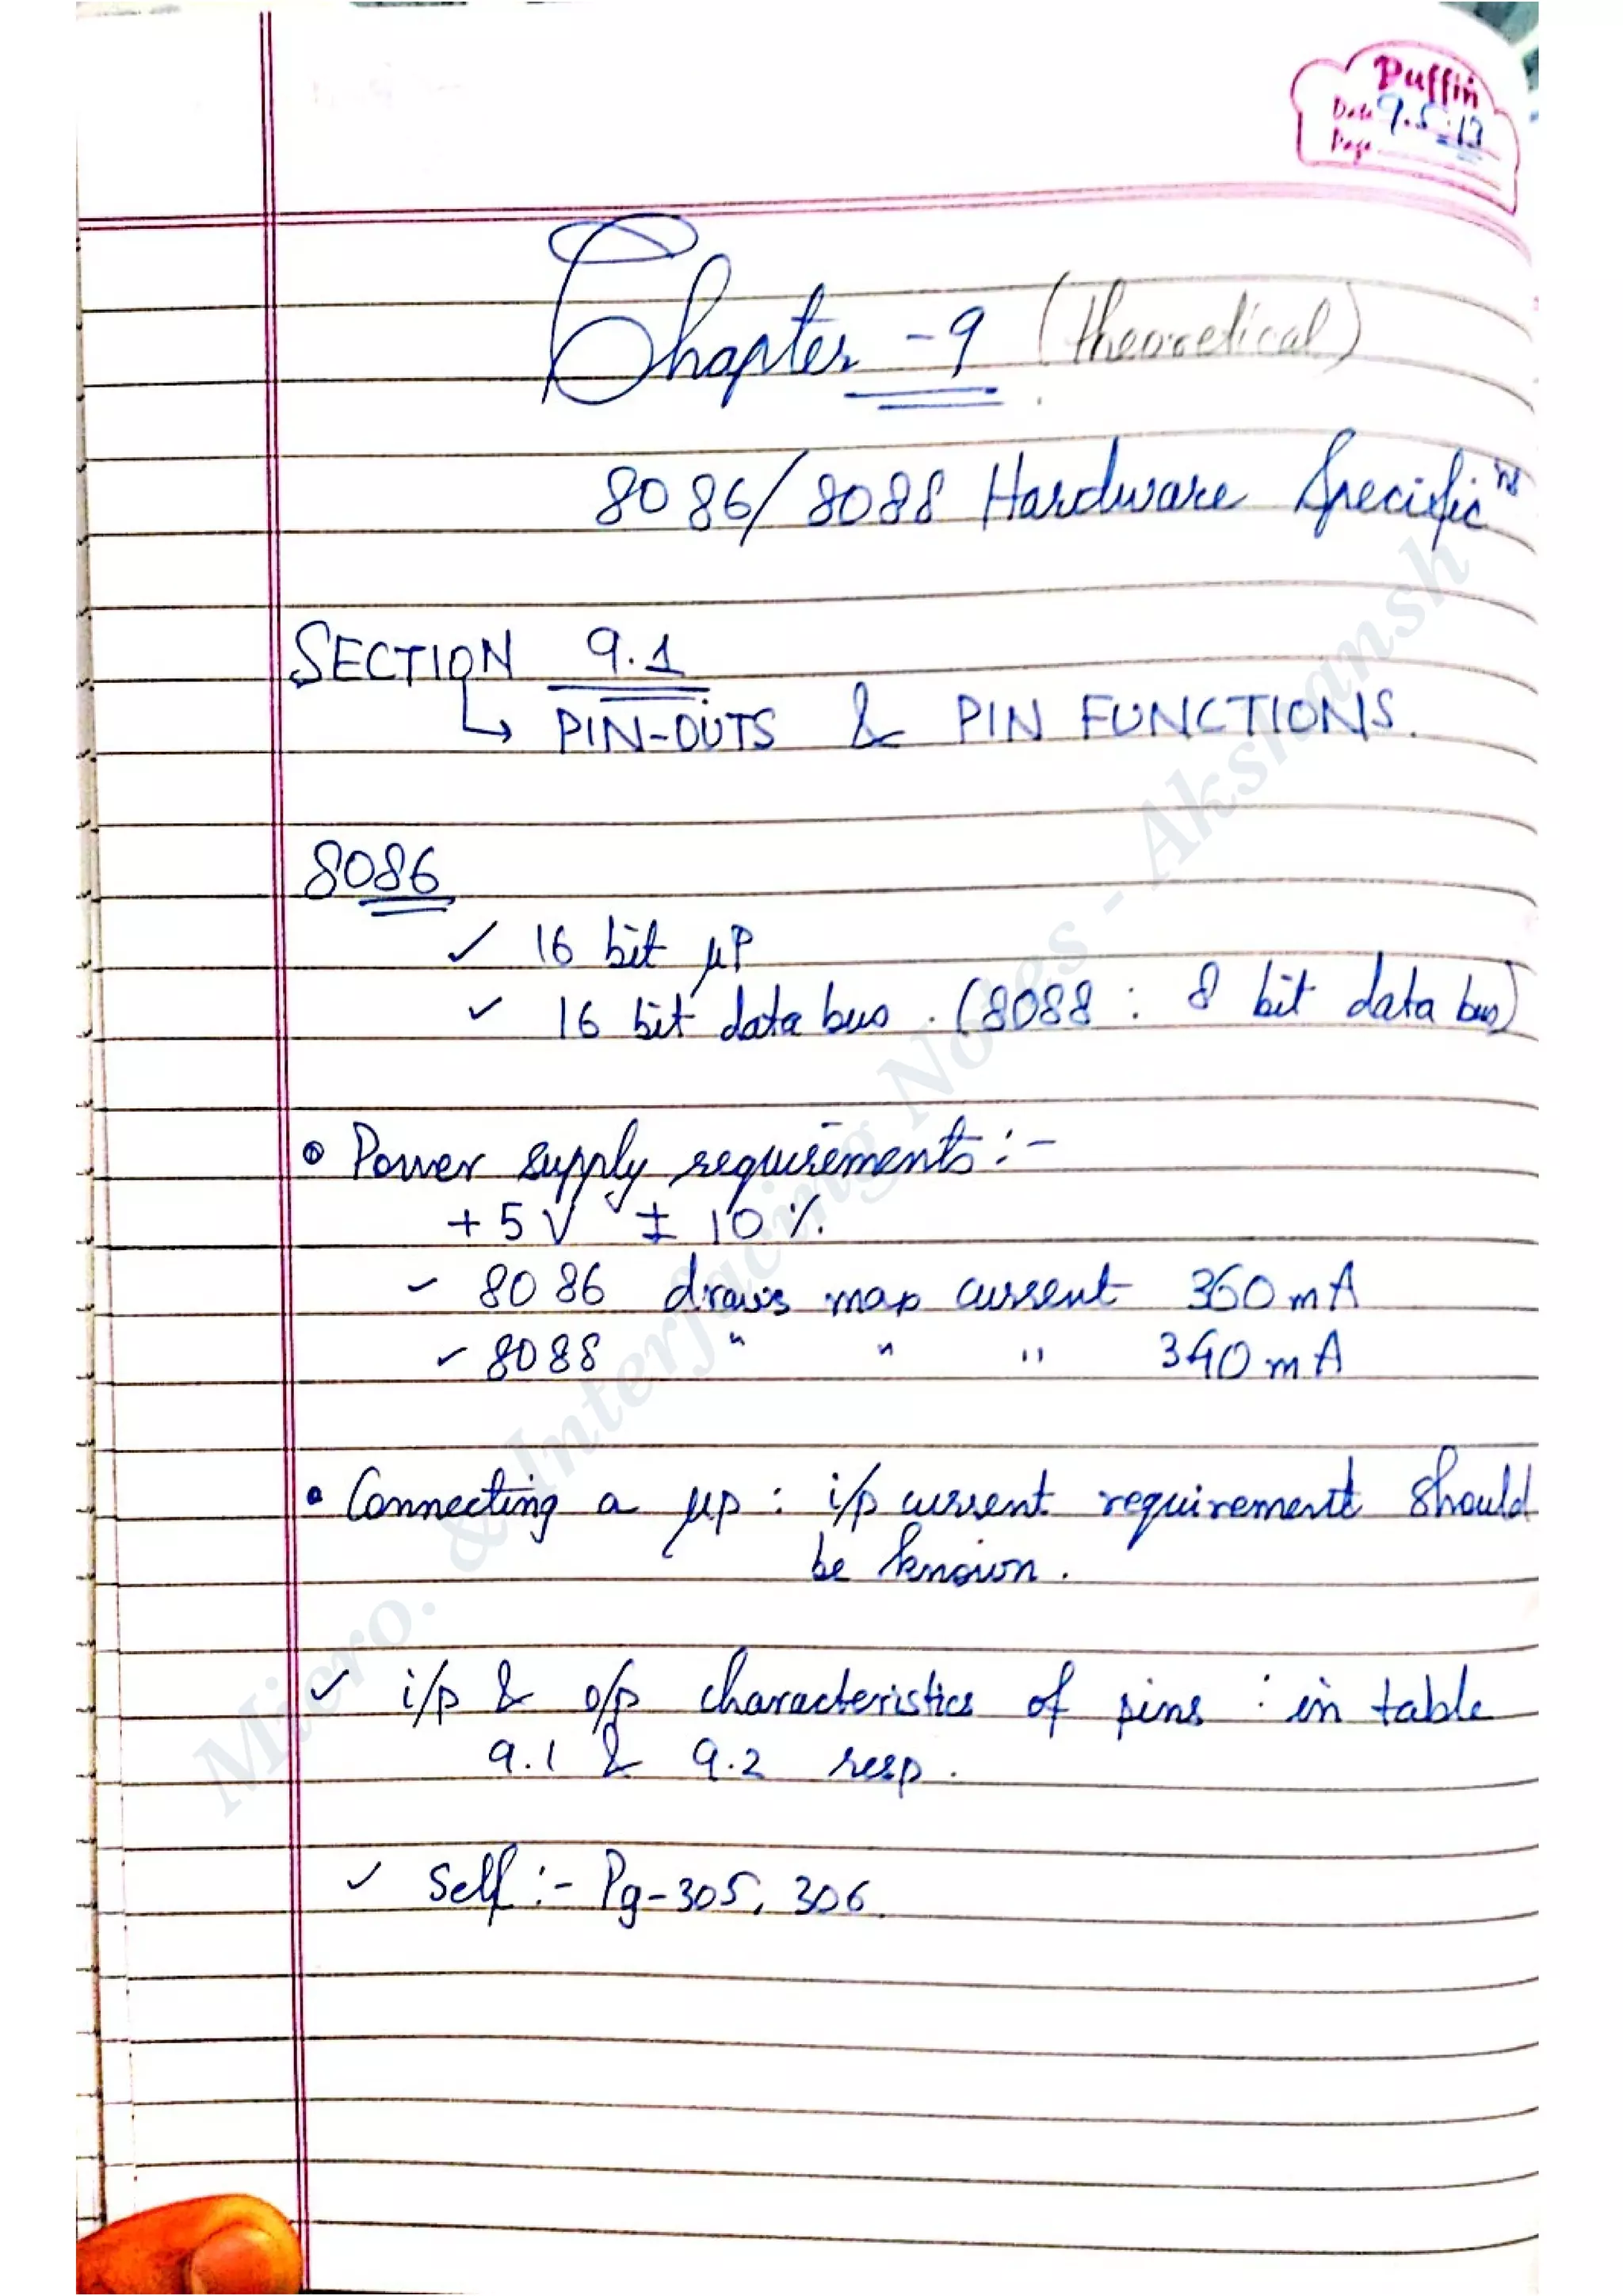 Puffin
Date 9.5.13
Page
Chapter - 9 (theoretical)
8086/8088 Hardware Specific^ns
SECTION 9.1
↳ PIN-OUTS & PIN FUNCTIONS.
8086
✓ 16 bit μP
✓ 16 bit data bus . (8088 : 8 bit data bus)
• Power supply requirements :-
+5V ± 10 %.
- 8086 draws max current 360 mA
✓ 8088 " " " 340 mA
• Connecting a μp : i/p current requirement should
be known .
✓ i/p & o/p characteristics of pins : in table
9.1 & 9.2 resp .
✓ Self :- Pg-305, 306.
Micro. & Interfacing Notes - Akshansh